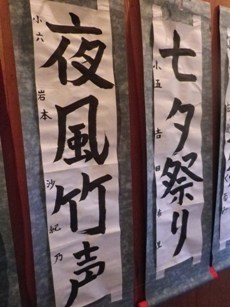 七夕祭り
小五 吉田
夜風竹声
小六 岩本 沙紀乃